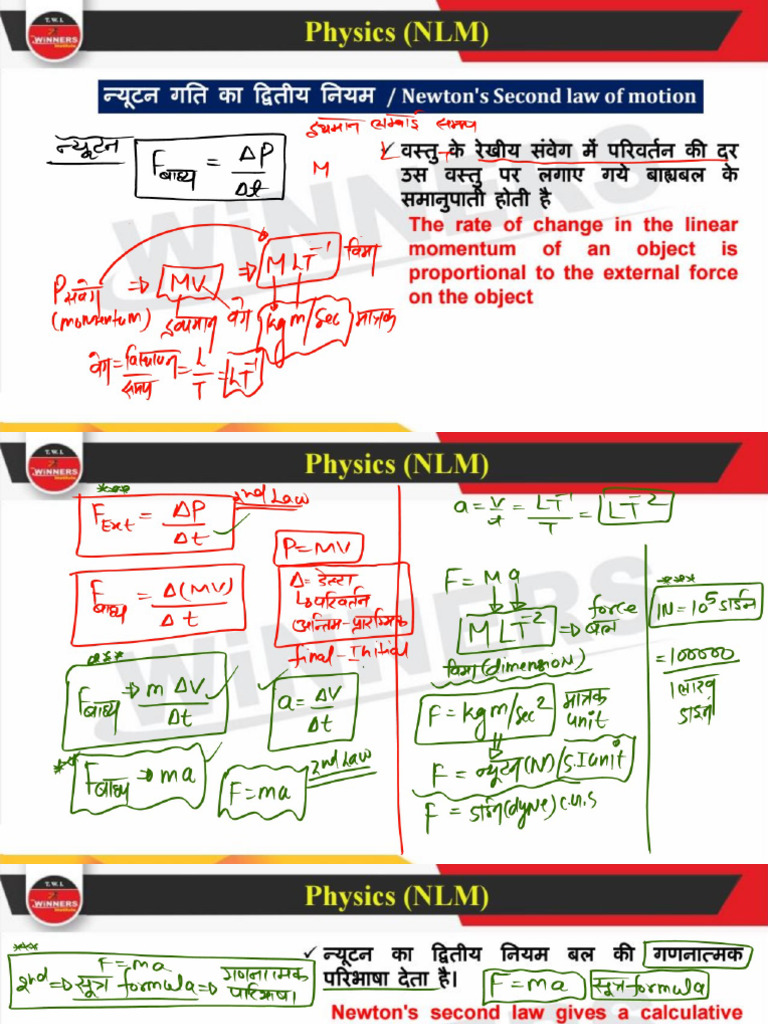 T.W.I.
WINNERS
Institute
Physics (NLM)
न्यूटन गति का द्वितीय नियम / Newton's Second law of motion
द्रव्यमान लम्बाई समय
M
न्यूटन
F बाह्य = ΔP / Δt
✓ वस्तु के रेखीय संवेग में परिवर्तन की दर
उस वस्तु पर लगाए गये बाह्यबल के
समानुपाती होती है
The rate of change in the linear
momentum of an object is
proportional to the external force
on the object
P संवेग (momentum) ⇒ MV ⇒ MLT⁻¹ विमा
द्रव्यमान वेग kg m/sec मात्रक
वेग = विस्थापन / समय = L / T = LT⁻¹
WiNNERS
T.W.I.
WINNERS
Institute
Physics (NLM)
***
F Ext = ΔP / Δt ✓ 2nd Law
P = MV
F बाह्य = Δ(MV) / Δt
Δ = डेल्टा
↳ परिवर्तन
अन्तिम - प्रारम्भिक
final - Initial
***
F बाह्य → m ΔV / Δt ✓
✓ a = ΔV / Δt
**
F बाह्य → ma
F = ma 2nd Law
a = V / t = LT⁻¹ / T = LT⁻²
F = Ma
MLT⁻² ⇒ force बल
विमा (dimension)
F = kg m/sec² मात्रक unit
F = न्यूटन (N) / S.I unit
F = डाईन (dyne) C.G.S
***
1N = 10⁵ डाईन
= 100000
1 लाख
डाईन
WiNNERS
T.W.I.
WINNERS
Institute
Physics (NLM)
***
F = ma
2nd ⇒ सूत्र formula ⇒ गणनात्मक परिभाषा।
✓ न्यूटन का द्वितीय नियम बल की गणनात्मक
परिभाषा देता है।
F = ma सूत्र formula
Newton's second law gives a calculative